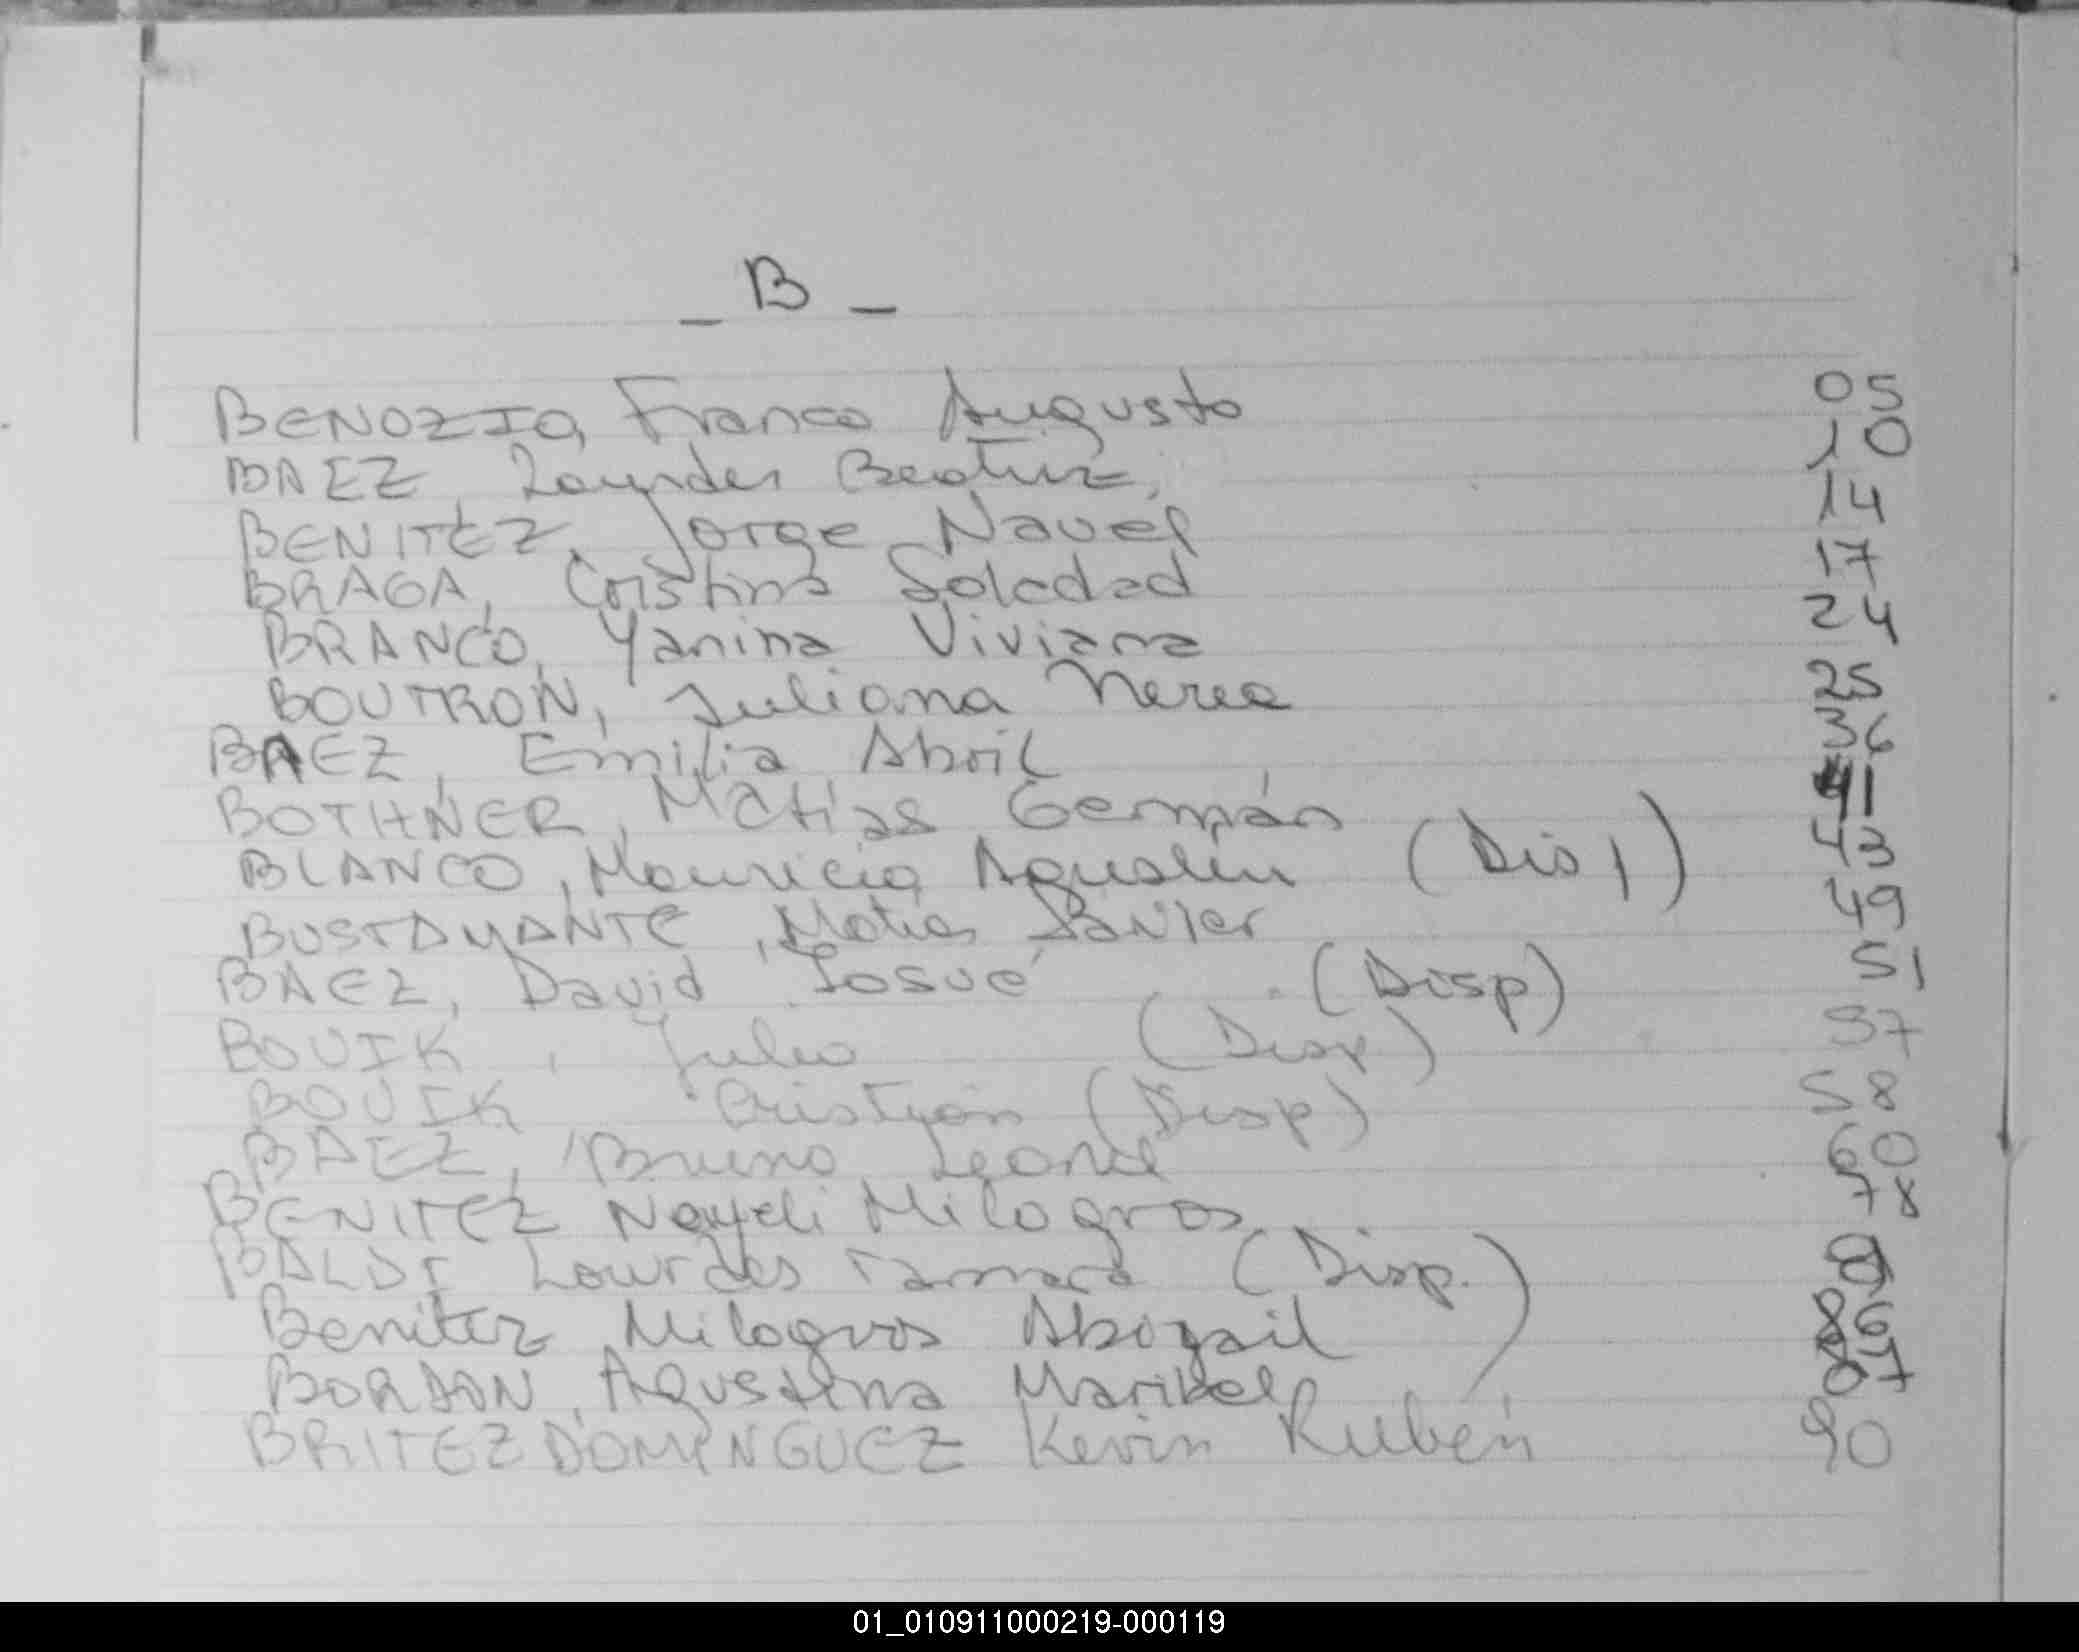 _ B _
BENOZIO, Franco Augusto 05
BAEZ, Lourdes Beatriz, 10
BENITEZ, Jorge Nauel 14
BRAGA, Cristina Soledad 17
BRANCO, Yanina Viviana 24
BOUTRON, Juliana Nerea 25
BAEZ, Emilia Abril 36
BOTHNER, Matías Germán 41
BLANCO, Mauricio Agustín (Disp) 43
BUSTAMANTE, Matias Javier 49
BAEZ, David Josué (Disp) 51
BOUIK, Julio (Disp) 57
BOUIK Cristian (Disp) 58
BAEZ, Bruno Leonel 60
BENITEZ Nayeli Milagros 78
BALDI Lourdes Tamara (Disp.)
Benitez Milagros Abigail 86
BORDON, Agustina Maribel 87
BRITEZ DOMINGUEZ Kevin Rubén 90
01_010911000219-000119